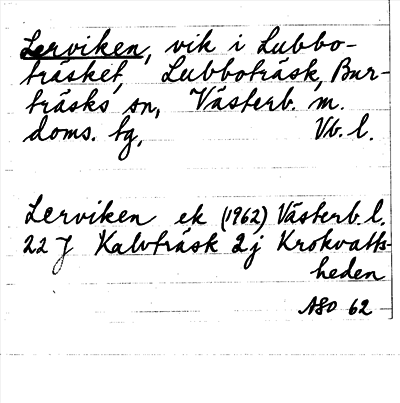 Lerviken, vik i Lubbo-
träsket, Lubboträsk, Bur-
träsks sn, Västerb. m.
doms. tg, Vb. l.
Lerviken ek (1962) Västerb. l.
22 J Kalvträsk 2 j Krokvatts-
heden
ASD 62